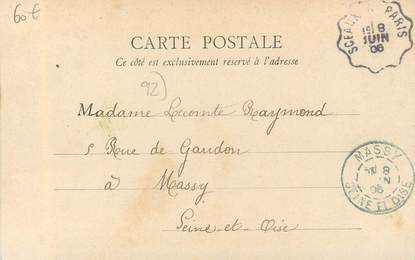 60 €
SCEAUX A PARIS
8
JUIN
06
CARTE POSTALE
Ce côté est exclusivement réservé à l'adresse
92)
Madame Lecomte Raymond
5 Rue de Gaudon
à Massy
Seine-et-Oise
MASSY
8
06
SEINE-ET-OISE